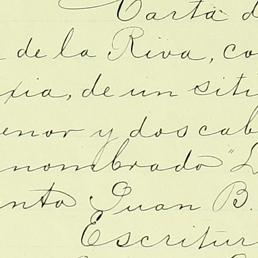 Carta d
de la Riva, co
xia, de un siti
enor y dos cab
nombrado "L
nto Juan B.
Escritur